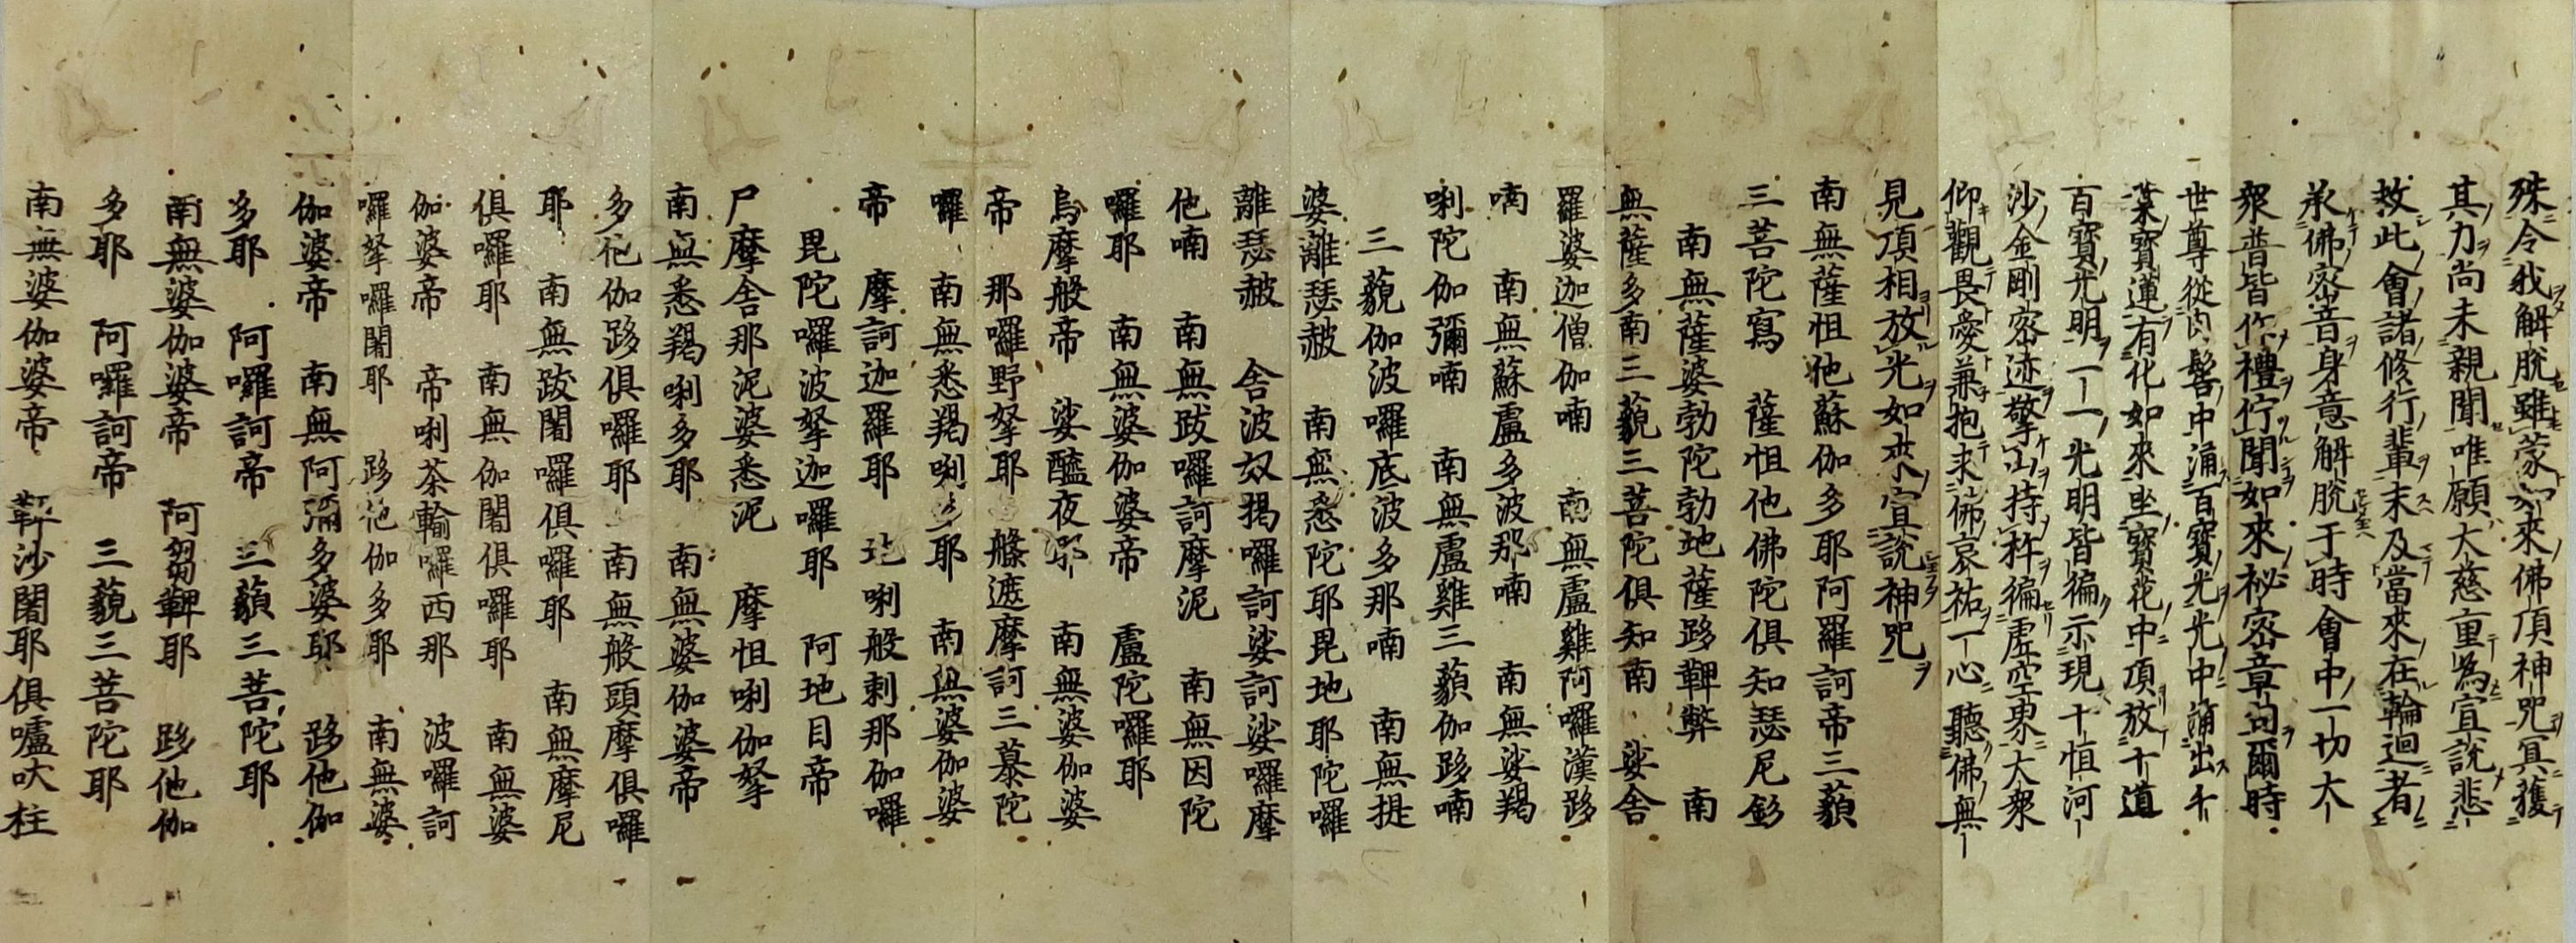 殊令我解脫雖蒙如來佛頂神咒冥獲
其力尚未親聞唯願大慈重為宣說悲
救此會諸修行輩末及當來在輪迴者
承佛密音身意解脫于時會中一切大
衆普皆作禮佇聞如來秘密章句爾時
世尊從肉髻中涌百寶光光中涌出千
葉寶蓮有化如來坐寶花中頂放十道
百寶光明一一光明皆徧示現十恒河
沙金剛密迹擎山持杵徧虛空界大衆
仰觀畏愛兼抱求佛哀祐一心聽佛無
見頂相放光如來宣說神咒
南無薩怛他蘇伽多耶阿羅訶帝三藐
三菩陀寫　薩怛他佛陀俱知瑟尼釤
南無薩婆勃陀勃地薩跢鞞弊　南
無薩多南三藐三菩陀俱知南　娑舍
羅婆迦僧伽喃　南無盧雞阿囉漢跢
喃　南無蘇盧多波那喃　南無娑羯
唎陀伽彌喃　南無盧雞三藐伽跢喃
三藐伽波囉底波多那喃　南無提
婆離瑟赧　南無悉陀耶毘地耶陀囉
離瑟赧　舍波奴揭囉訶娑訶娑囉摩
他喃　南無跋囉訶摩泥　南無因陀
囉耶　南無婆伽婆帝　盧陀囉耶
烏摩般帝　娑醯夜耶　南無婆伽婆
帝　那囉野拏耶　槃遮摩訶三慕陀
囉　南無悉羯唎多耶　南無婆伽婆
帝　摩訶迦羅耶　地唎般剌那伽囉
毘陀囉波拏迦囉耶　阿地目帝
尸摩舍那泥婆悉泥　摩怛唎伽拏
南無悉羯唎多耶　南無婆伽婆帝
多他伽跢俱囉耶　南無般頭摩俱囉
耶　南無跋闍囉俱囉耶　南無摩尼
俱囉耶　南無伽闍俱囉耶　南無婆
伽婆帝　帝唎茶輸囉西那　波囉訶
囉拏囉闍耶　跢他伽多耶　南無婆
伽婆帝　南無阿彌多婆耶　跢他伽
多耶　阿囉訶帝　三藐三菩陀耶
南無婆伽婆帝　阿芻鞞耶　跢他伽
多耶　阿囉訶帝　三藐三菩陀耶
南無婆伽婆帝　鞞沙闍耶俱嚧吠柱